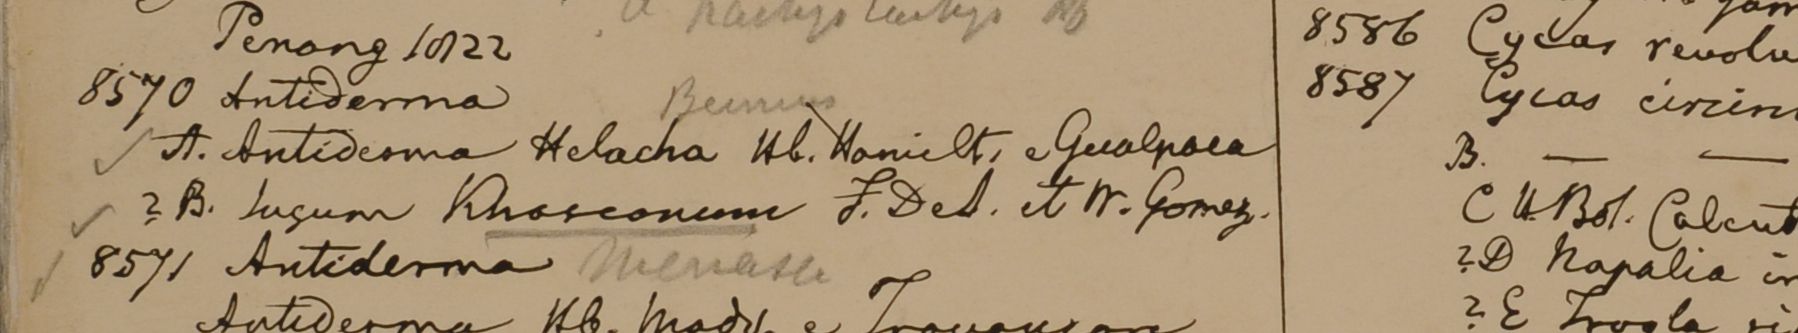 Penang 1822
8570 Antiderma
Bunius
A. Antidesma Helacha Hb. Hamilt. e Gualpara
? B. Jugum Khaseanum F. DeS. et W. Gomez.
8571 Antiderma Menasu
Antidesma Hb. Madr. e Travancore
8586 Cycas revolu
8587 Cycas circin
B. — —
C H. Bot. Calcut
? D Napalia in
? E